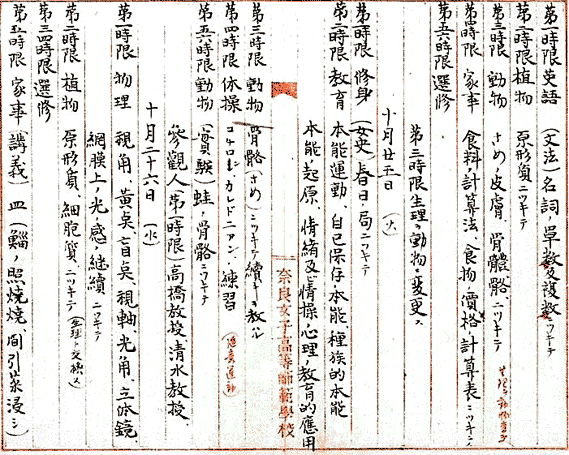 第一時限英語 (文法)名詞、單數及複數ニツキテ
第二時限植物 原形質ニツキテ
第三時限 動物 さめノ皮膚、骨體骼、ニツキテ
第四時限 家事 食料ノ計算法、食物ノ價格計算表ニツキテ
第五六時限選修
第三時限生理ヲ動物ニ変更ス
十月廿五日 (火)
第一時限 修身 (女史)春日ノ局ニツキテ
第二時限 教育 本能運動、自己保存ノ本能、種族的本能
本能ノ起原、情緒及ビ情操ノ心理ノ教育的應用
奈良女子高等師範學校
第三時限 動物 骨骼(さめ)ニツキテ續キヲ教ハル
第四時限 体操 コケロビシカレドニアン、練習
第五六時限動物 (實驗)蛙ノ骨骼ニツキテ
參觀人(第一時限)高橋教授、清水教授、
十月二十六日 (水)
第一時限 物理 視角、黄点、盲点、視軸、光角、立体鏡
網膜上ノ光感継續ニツキテ
第二時限 植物 原形質、細胞質、ニツキテ(生理ト交換ス)
第三四時限 選修
第五時限 家事 (講義) 皿(鰡ノ照燒燒、間引菜浸シ)